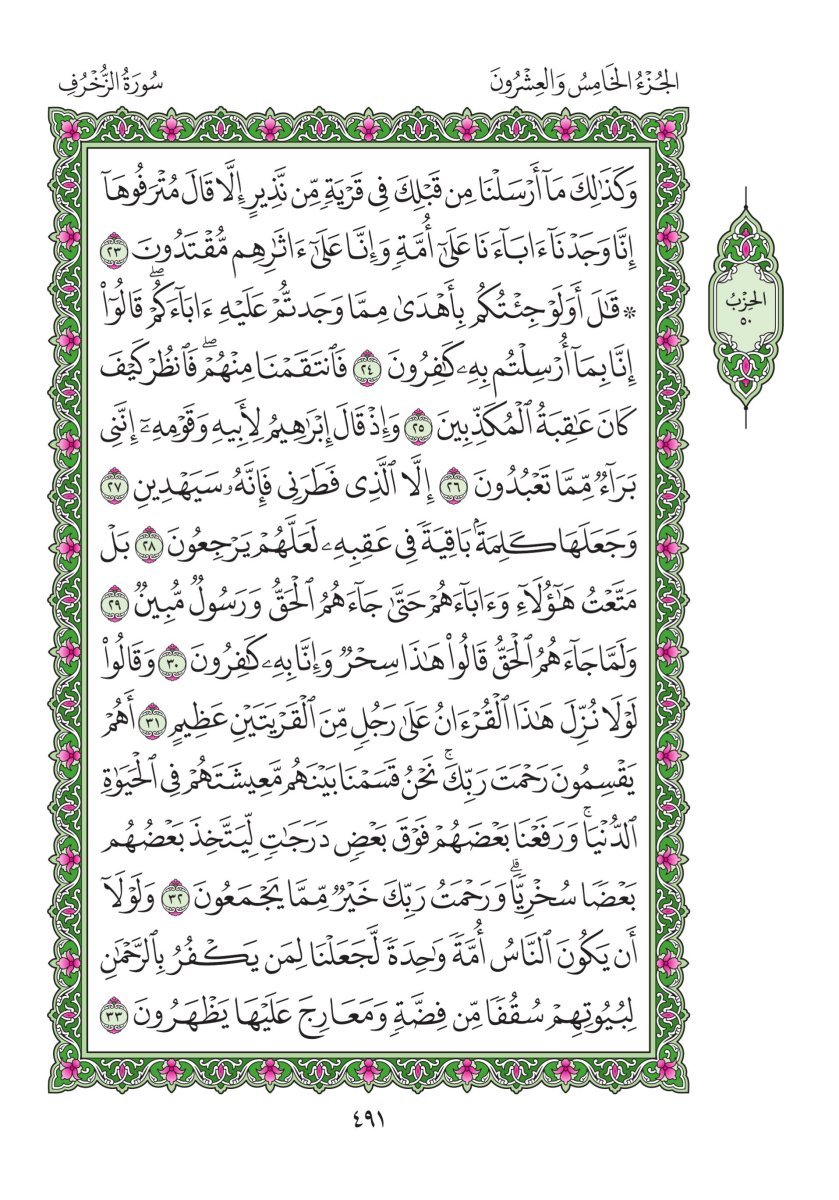 الجُزْءُ الخَامِسُ وَالعِشْرُونَ
سُورَةُ الزُّخْرُفِ
وَكَذَٰلِكَ مَآ أَرْسَلْنَا مِن قَبْلِكَ فِى قَرْيَةٍ مِّن نَّذِيرٍ إِلَّا قَالَ مُتْرَفُوهَآ
إِنَّا وَجَدْنَآ ءَابَآءَنَا عَلَىٰٓ أُمَّةٍ وَإِنَّا عَلَىٰٓ ءَاثَٰرِهِم مُّقْتَدُونَ ٢٣
* قَٰلَ أَوَلَوْ جِئْتُكُم بِأَهْدَىٰ مِمَّا وَجَدتُّمْ عَلَيْهِ ءَابَآءَكُمْۖ قَالُوٓا۟
إِنَّا بِمَآ أُرْسِلْتُم بِهِۦ كَٰفِرُونَ ٢٤ فَٱنتَقَمْنَا مِنْهُمْۖ فَٱنظُرْ كَيْفَ
كَانَ عَٰقِبَةُ ٱلْمُكَذِّبِينَ ٢٥ وَإِذْ قَالَ إِبْرَٰهِيمُ لِأَبِيهِ وَقَوْمِهِۦٓ إِنَّنِى
بَرَآءٌ مِّمَّا تَعْبُدُونَ ٢٦ إِلَّا ٱلَّذِى فَطَرَنِى فَإِنَّهُۥ سَيَهْدِينِ ٢٧
وَجَعَلَهَا كَلِمَةًۢ بَاقِيَةً فِى عَقِبِهِۦ لَعَلَّهُمْ يَرْجِعُونَ ٢٨ بَلْ
مَتَّعْتُ هَٰٓؤُلَآءِ وَءَابَآءَهُمْ حَتَّىٰ جَآءَهُمُ ٱلْحَقُّ وَرَسُولٌ مُّبِينٌ ٢٩
وَلَمَّا جَآءَهُمُ ٱلْحَقُّ قَالُوا۟ هَٰذَا سِحْرٌ وَإِنَّا بِهِۦ كَٰفِرُونَ ٣٠ وَقَالُوا۟
لَوْلَا نُزِّلَ هَٰذَا ٱلْقُرْءَانُ عَلَىٰ رَجُلٍ مِّنَ ٱلْقَرْيَتَيْنِ عَظِيمٍ ٣١ أَهُمْ
يَقْسِمُونَ رَحْمَتَ رَبِّكَۚ نَحْنُ قَسَمْنَا بَيْنَهُم مَّعِيشَتَهُمْ فِى ٱلْحَيَوٰةِ
ٱلدُّنْيَاۚ وَرَفَعْنَا بَعْضَهُمْ فَوْقَ بَعْضٍ دَرَجَٰتٍ لِّيَتَّخِذَ بَعْضُهُم
بَعْضًا سُخْرِيًّاۗ وَرَحْمَتُ رَبِّكَ خَيْرٌ مِّمَّا يَجْمَعُونَ ٣٢ وَلَوْلَآ
أَن يَكُونَ ٱلنَّاسُ أُمَّةً وَٰحِدَةً لَّجَعَلْنَا لِمَن يَكْفُرُ بِٱلرَّحْمَٰنِ
لِبُيُوتِهِمْ سُقُفًا مِّن فِضَّةٍ وَمَعَارِجَ عَلَيْهَا يَظْهَرُونَ ٣٣
الحِزْبُ
٥٠
٤٩١